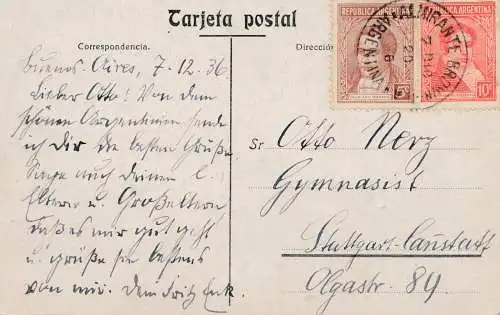 Tarjeta postal
Correspondencia.
Dirección
REPUBLICA ARGENTINA
REPUBLICA ARGENTINA
5c
10c
ALMIRANTE BROWN
ARGENTINA
7 DIC
20
6
Buenos-Aires, 7.12.36
Lieber Otto! Von dem
schönen Argentinien sende
ich Dir die besten Grüße.
Sage auch Deinen l.
Eltern u. Großeltern
daß es mir gut geht
u. grüße sie bestens
von mir. Dein Fritz
Sr Otto Nerz
Gymnasist
Stuttgart-Cannstatt
Olgastr. 89